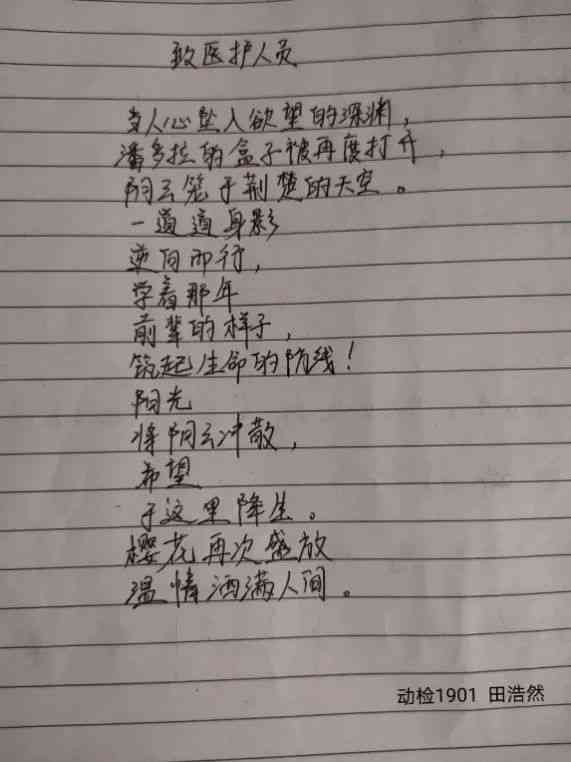 致医护人员
当人心坠入欲望的深渊，
潘多拉的盒子被再度打开，
阴云笼于荆楚的天空。
一道道身影
逆向而行，
学着那年
前辈的样子，
筑起生命的防线！
阳光
将阴云冲散，
希望
于这里降生。
樱花再次盛放
温情洒满人间。
动检1901 田浩然